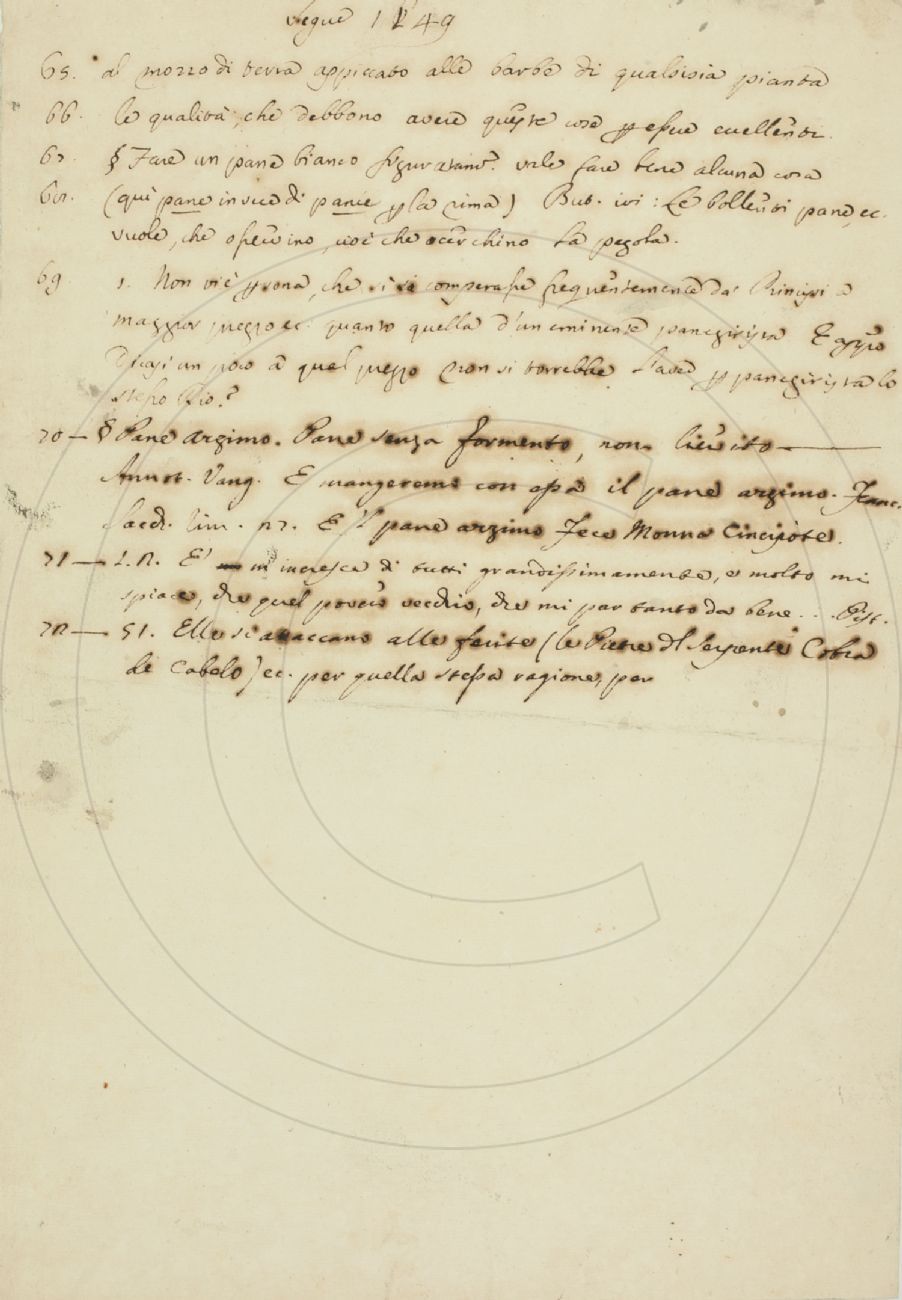 segue 1249
65. al mozzo di terra appiccato alle barbe di qualsisia pianta
66. le qualità, che debbono avere queste cose p esser eccellenti.
67. § Fare un pane bianco figuratam.e vale fare bene alcuna cosa
68. (qui pane in vece di panie p la rima) But. ivi: Le bollenti pane, ec.
vuole, che ofeci ino, cioè che cerchino la pegola.
69 1. Non vi è psona, che si comperasse frequentemente da' Principi a
maggior prezzo ec. quanto quella d'un eminente panegirista E appo
Dicasi un poco a quel prezzo non si torrebbe l'aver p panegirista lo
stesso Dio?
70 — § Pane azzimo. Pane senza formento, non lievito —
Annot. Vang. E mangeremo con essa il pane azzimo. Franc.
Sacch. rim. E 'l pane azzimo fece Monna Cincipote.
71 — L. R. E' m'incresce di tutti grandissimamente, e molto mi
spiace, che quel povero vecchio, che mi par tanto da bene... Pist.
72 — 51. Elle si attaccano alle ferite (le Pietre dl Serpente Cobra
de Cabelo) ec. per quella stessa ragione, per